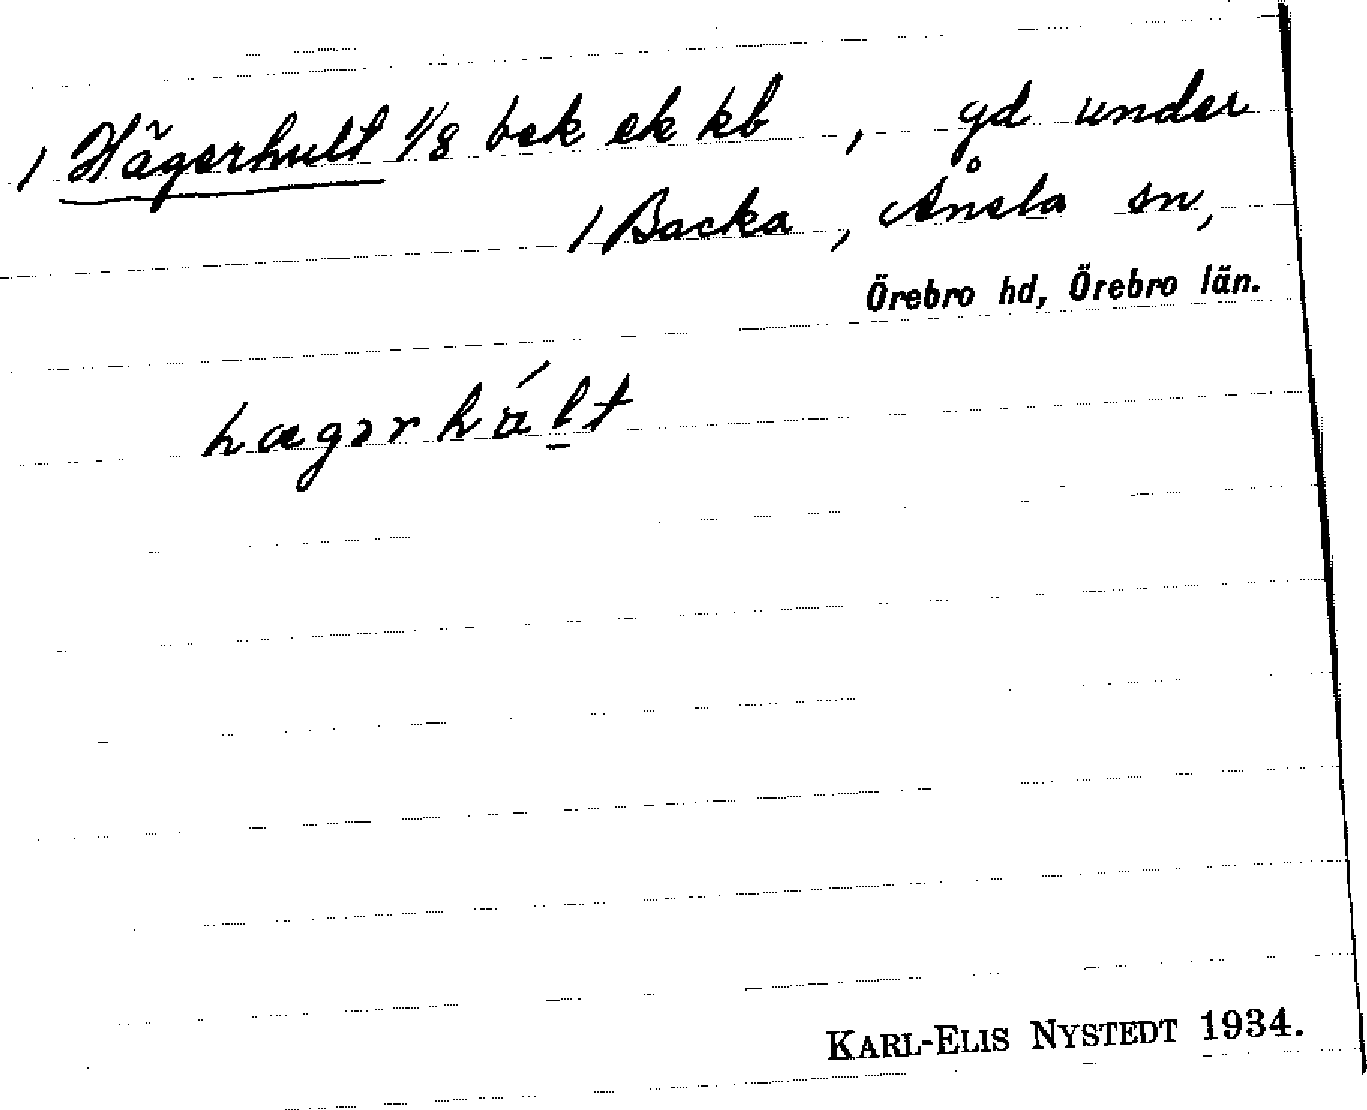 / Hägerhult 1/8 bek ek kb, gd under
/ Backa, Ånsta sn,
Örebro hd, Örebro län.
hægərhá̤lt
KARL-ELIS NYSTEDT 1934.